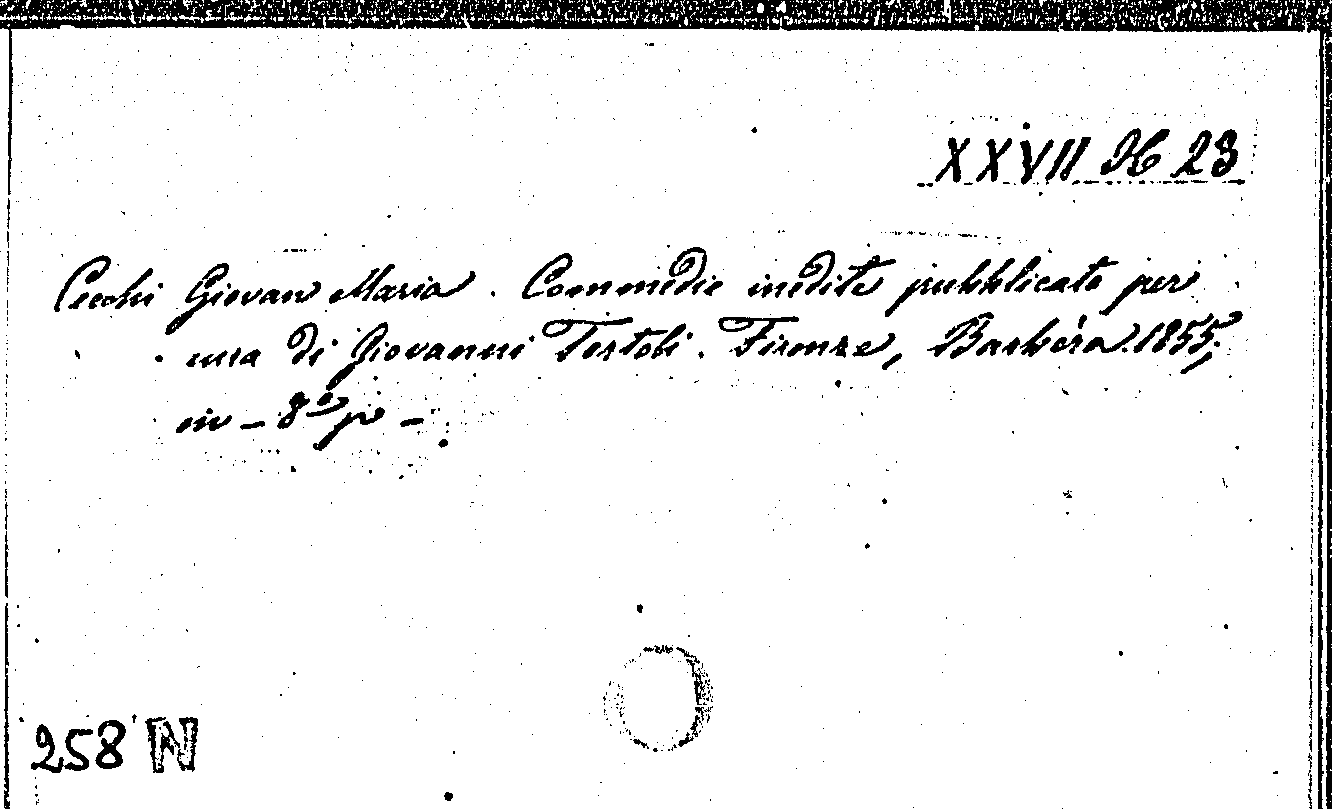 XXVII H 23
Cecchi Giovan Maria. Commedie inedite pubblicate per
cura di Giovanni Tortoli. Firenze, Barbèra. 1855;
in - 8º p -
258 N